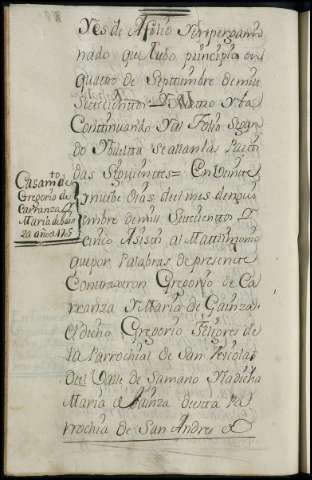 nes de Afolio N empergami
nado que tubo principio en
quatro de Septtiembre de mill
Settecientos
Continuando Y al Folio Segun
do se allan las Partti
das Siguientes = En Veinte
y nuebe dias del mes de
mbre de mill Settecientos y
cinco Asisti al Mattrimonio
que por Palabras de presentte
Contrageron Gregorio de Ca
rranza Y Maria de Gainza
el dicho Gregorio Feligres de
la Parrochial de San Nicolas
del Valle de Samano Y la dicha
Maria de Gainza de esta Pa
rrochia de San Andres de
Casamto de
Gregorio de
Carranza y
Maria de Gain
za año de 1705